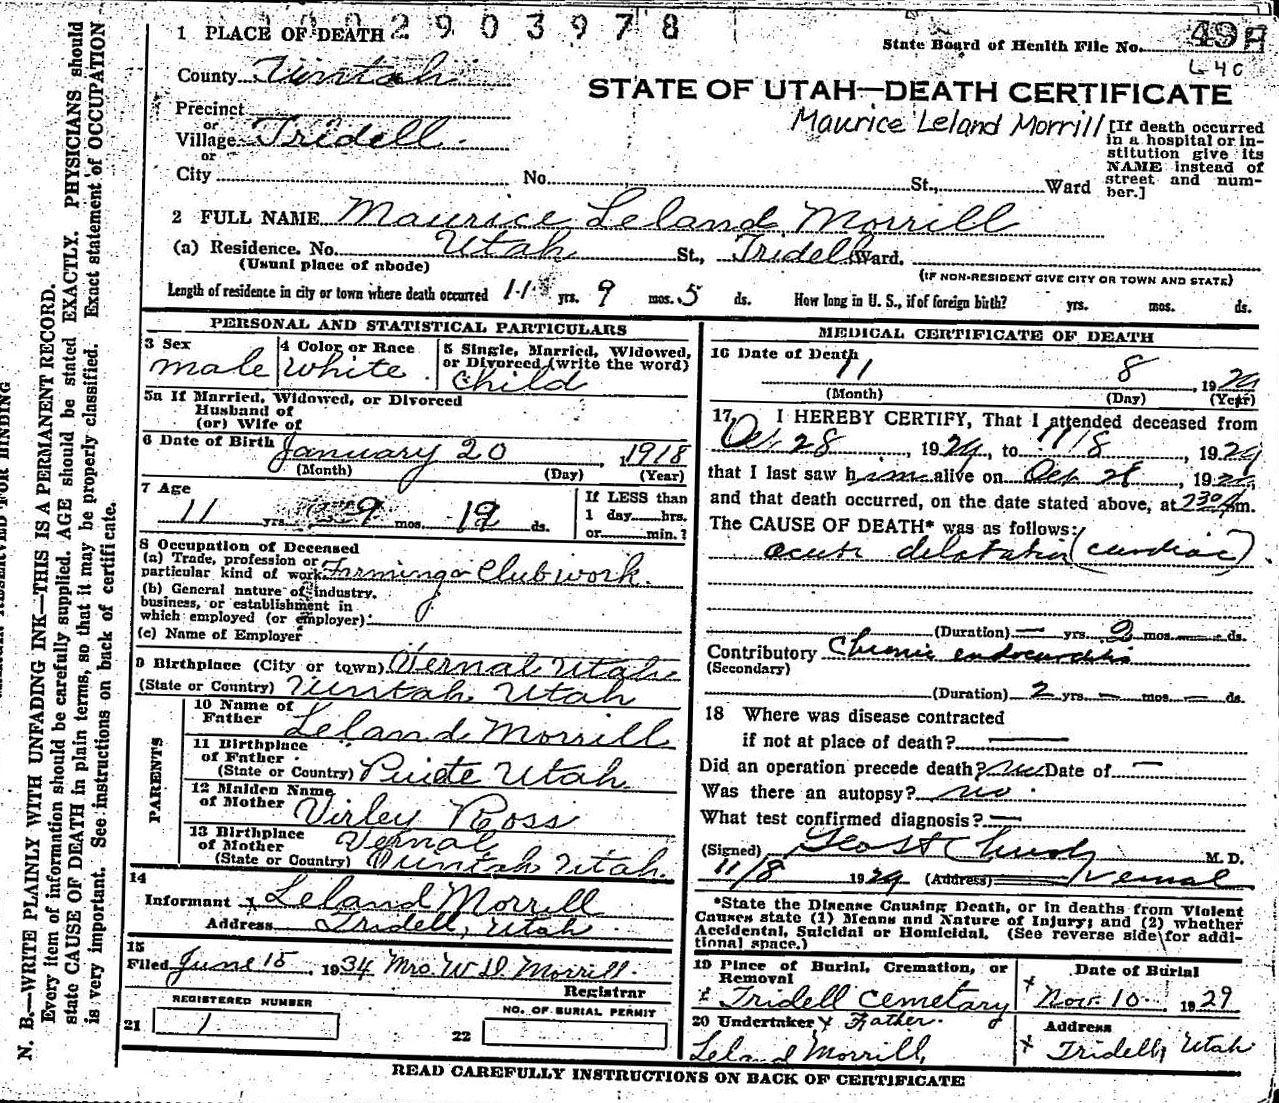 1 PLACE OF DEATH 2 9 0 3 9 7 8
State Board of Health File No. 49
640
County Uintah
STATE OF UTAH—DEATH CERTIFICATE
Maurice Leland Morrill
Precinct
or
Village Tridell
or
City No. St., Ward
[If death occurred
in a hospital or in-
stitution give its
NAME instead of
street and num-
ber.]
2 FULL NAME Maurice Leland Morrill
(a) Residence. No. Utah St., Tridell Ward.
(Usual place of abode)
(IF NON-RESIDENT GIVE CITY OR TOWN AND STATE)
Length of residence in city or town where death occurred 11 yrs. 9 mos. 5 ds. How long in U. S., if of foreign birth? yrs. mos. ds.
PERSONAL AND STATISTICAL PARTICULARS
3 Sex
male
4 Color or Race
White
5 Single, Married, Widowed,
or Divorced (write the word)
Child
5a If Married, Widowed, or Divorced
Husband of
(or) Wife of
6 Date of Birth January 20, 1918
(Month) (Day) (Year)
7 Age
11 yrs. 9 mos. 19 ds.
If LESS than
1 day hrs.
or min.?
8 Occupation of Deceased
(a) Trade, profession or
particular kind of work Farming Club work.
(b) General nature of industry,
business, or establishment in
which employed (or employer)
(c) Name of Employer
9 Birthplace (City or town) Vernal Utah
(State or Country) Uintah Utah
PARENTS
10 Name of
Father Leland Morrill
11 Birthplace
of Father
(State or Country) Piute Utah
12 Maiden Name
of Mother Virley Ross
13 Birthplace
of Mother Vernal
(State or Country) Uintah Utah.
14
Informant x Leland Morrill
Address Tridell, Utah
15
Filed June 15, 1934 Mrs W D Morrill.
Registrar
REGISTERED NUMBER
21 1
NO. OF BURIAL PERMIT
22
MEDICAL CERTIFICATE OF DEATH
16 Date of Death
11 8, 1929
(Month) (Day) (Year)
17 I HEREBY CERTIFY, That I attended deceased from
Oct 28, 1929, to 11/8, 1929
that I last saw him alive on Oct 28, 1929,
and that death occurred, on the date stated above, at 230 A m.
The CAUSE OF DEATH* was as follows:
acute dilatation (cardiac)
(Duration) — yrs. 2 mos. — ds.
Contributory Chronic endocarditis
(Secondary)
(Duration) 2 yrs. — mos. — ds.
18 Where was disease contracted
if not at place of death? —
Did an operation precede death? no Date of —
Was there an autopsy? no
What test confirmed diagnosis? —
(Signed) M. D.
11/8 1929 (Address) Vernal
*State the Disease Causing Death, or in deaths from Violent
Causes state (1) Means and Nature of Injury; and (2) whether
Accidental, Suicidal or Homicidal. (See reverse side for addi-
tional space.)
19 Place of Burial, Cremation, or
Removal
x Tridell Cemetary
Date of Burial
x Nov. 10. 1929
20 Undertaker x Father.
Leland Morrill,
Address
x Tridell, Utah
READ CAREFULLY INSTRUCTIONS ON BACK OF CERTIFICATE
N. B.—WRITE PLAINLY WITH UNFADING INK—THIS IS A PERMANENT RECORD.
Every item of information should be carefully supplied. AGE should be stated EXACTLY. PHYSICIANS should
state CAUSE OF DEATH in plain terms, so that it may be properly classified. Exact statement of OCCUPATION
is very important. See instructions on back of certificate.
RESERVED FOR BINDING